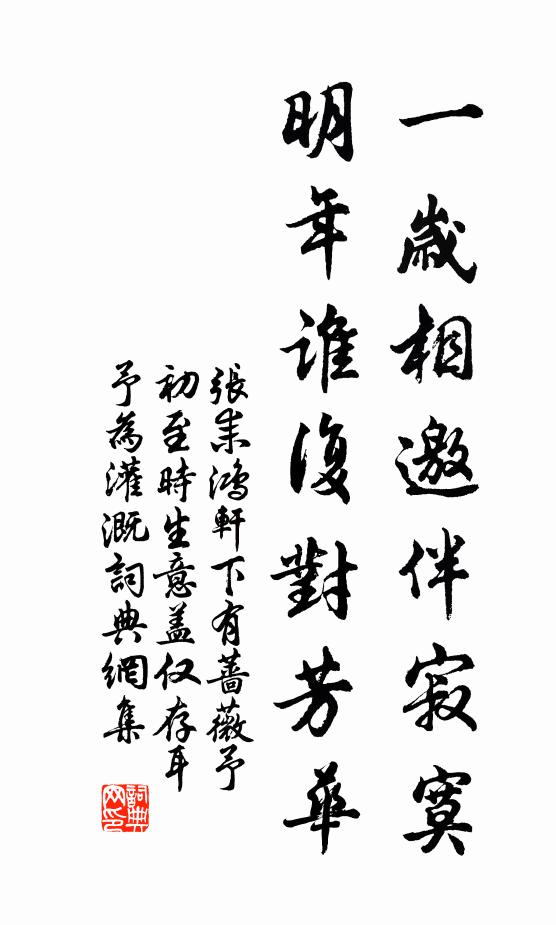 一歲相邀伴寂寞
明年誰復對芳華
張耒鴻軒下有薔薇予
初至時生意蓋仅存耳
予為灌溉詞典網集
詞典网印